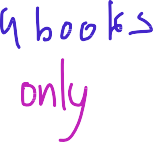 9 books
only